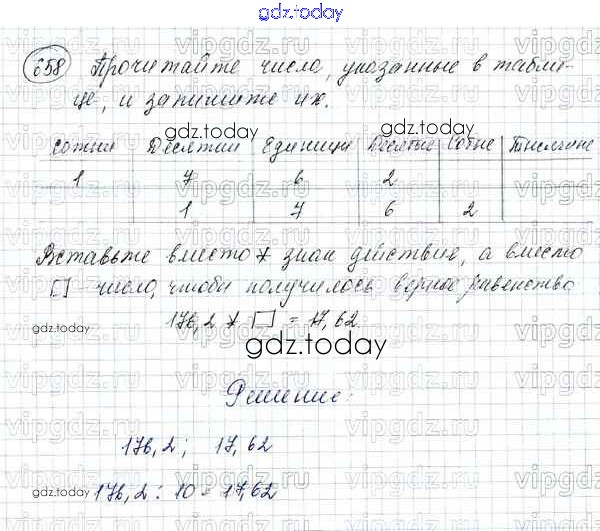 gdz.today
658 Прочитайте числа, указанные в табли-
це, и запишите их.
gdz.today gdz.today
сотни Десятки Единицы Десятые Сотые Тысячные
1 7 6 2
1 7 6 2
Вставьте вместо * знак действия, а вместо
[] число, чтобы получилось верное равенство
176,2 * [] = 17,62.
gdz.today gdz.today
Решение:
176,2; 17,62
gdz.today
176,2 : 10 = 17,62